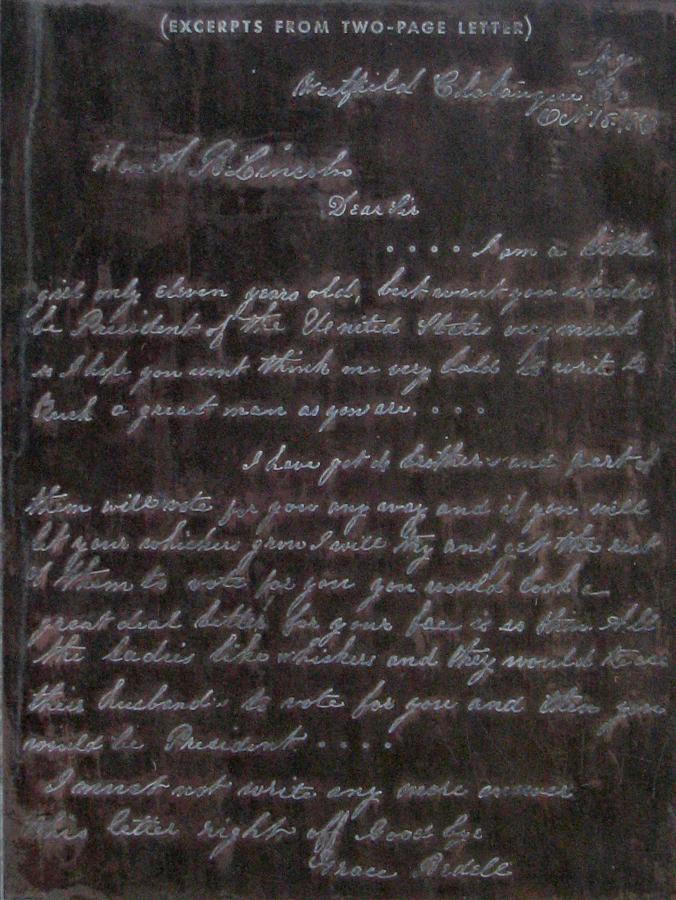 (EXCERPTS FROM TWO-PAGE LETTER)
N.Y.
Westfield Chatauque Co
Oct 15, 1860
Hon A B Lincoln
Dear Sir
. . . . I am a little
girl only eleven years old, but want you should
be President of the United States very much
so I hope you wont think me very bold to write to
such a great man as you are. . . .
I have got 4 brothers and part of
them will vote for you any way and if you will
let your whiskers grow I will try and get the rest
of them to vote for you you would look a
great deal better for your face is so thin All
the ladies like whiskers and they would tease
their husbands to vote for you and then you
would be President . . . .
I must not write any more answer
this letter right off Good bye
Grace Bedell